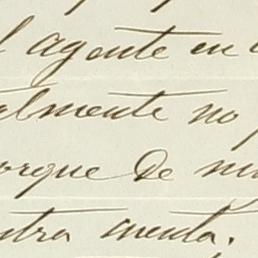 l agente en
almente no
orque de
ntra cuenta.